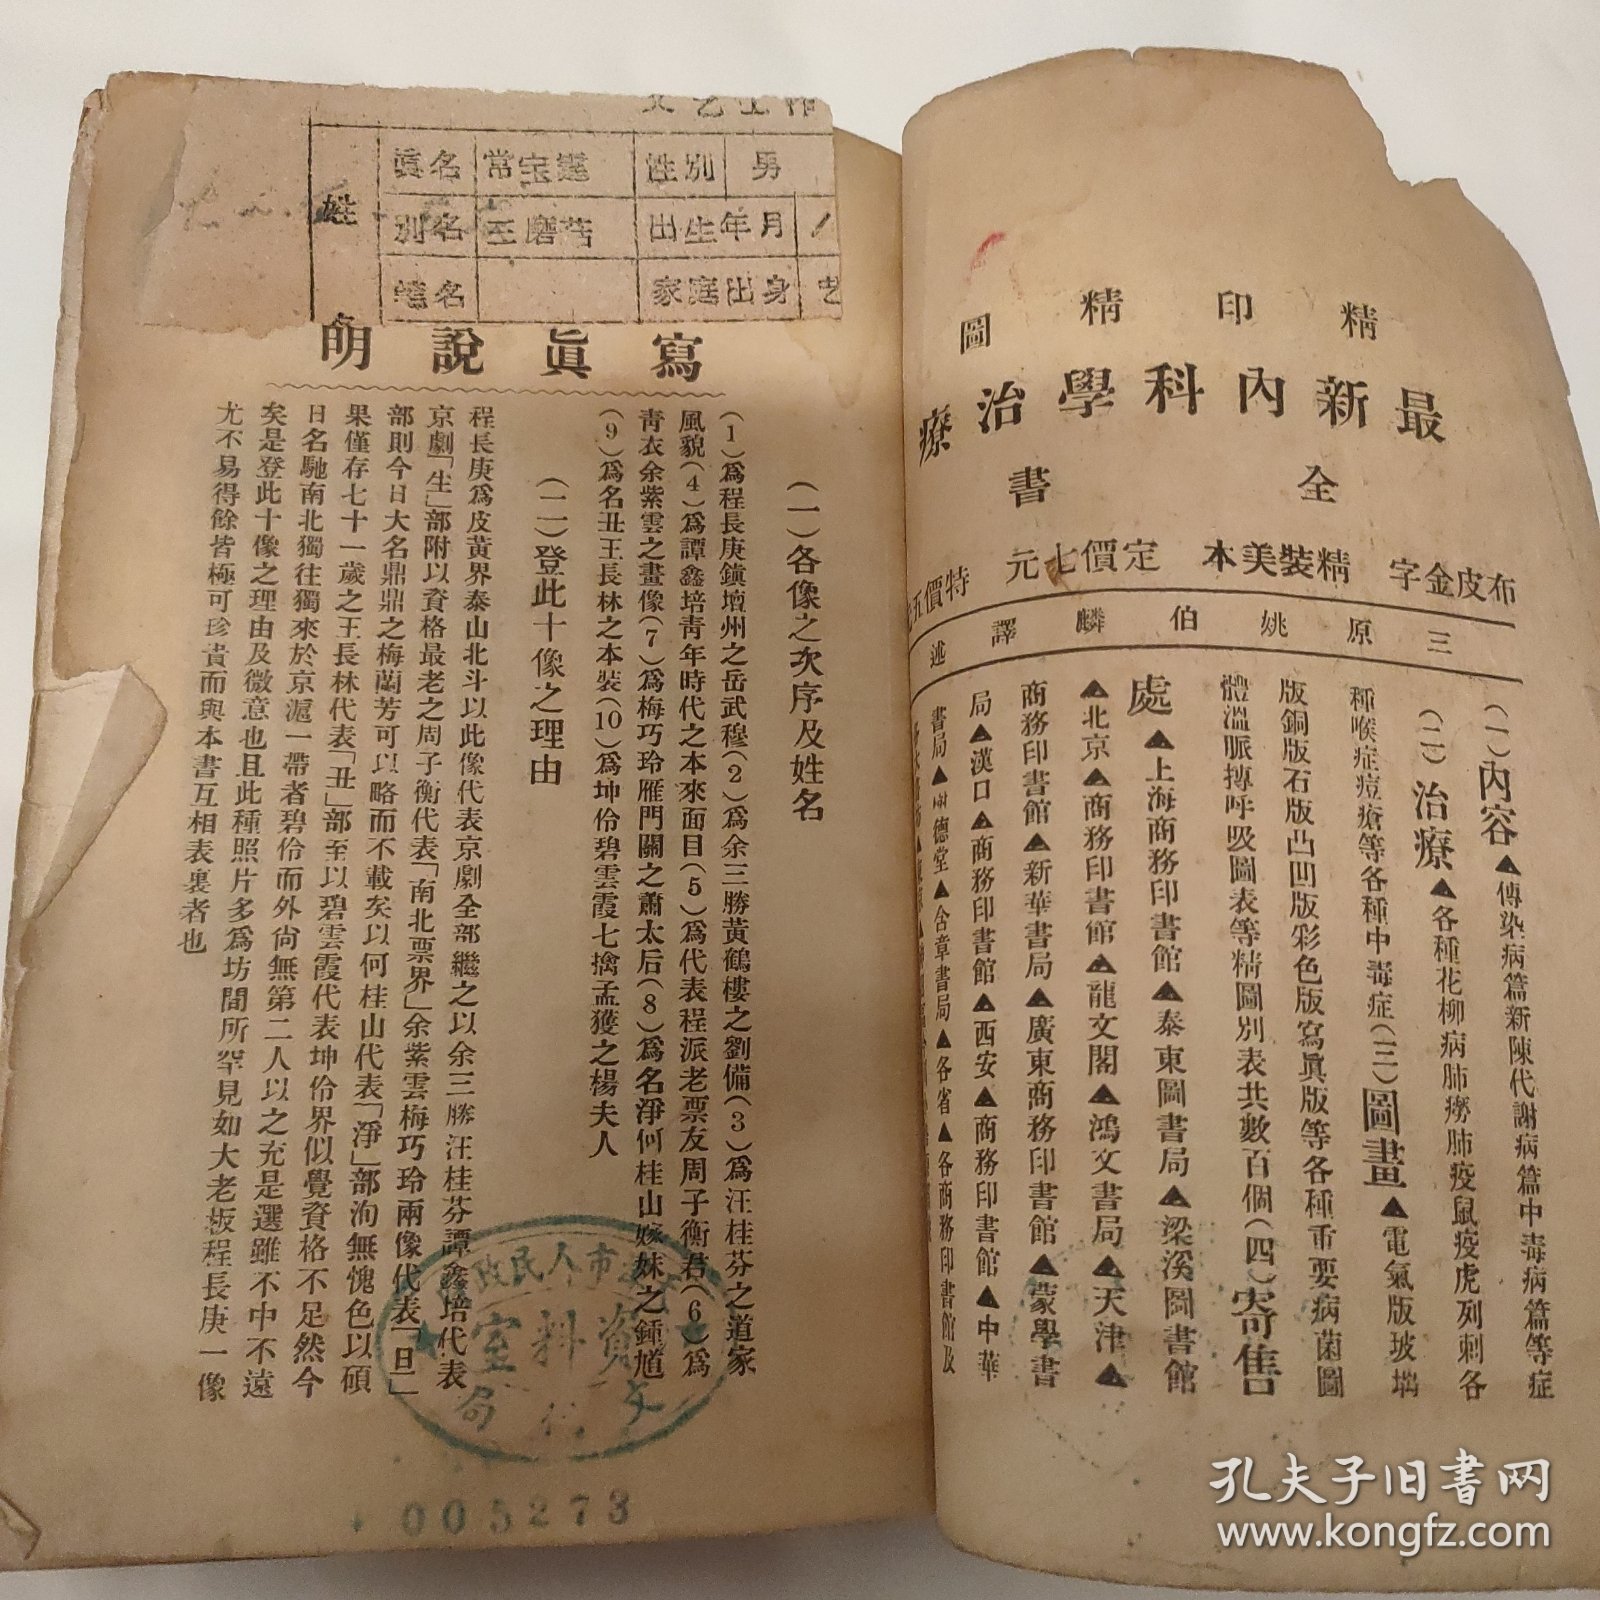 精印精圖
最新內科學治療
全書
布皮金字 精裝美本 定價七元 特價五
三原姚伯麟譯述
(一)內容▲傳染病篇新陳代謝病篇中毒病篇等症
(二)治療▲各種花柳病肺癆肺疫鼠疫虎列刺各
種喉症痘瘡等各種中毒症(三)圖畫▲電氣版玻璃
版銅版石版凸凹版彩色版寫眞版等各種重要病菌圖
體溫脈搏呼吸圖表等精圖別表共數百個(四)寄售
處▲上海商務印書館▲泰東圖書局▲梁溪圖書館
▲北京▲商務印書館▲龍文閣▲鴻文書局▲天津▲
商務印書館▲新華書局▲廣東商務印書館▲蒙學書
局▲漢口▲商務印書館▲西安▲商務印書館▲中華
書局▲德堂▲含章書局▲各省▲各商務印書館及
文艺工作
姓
眞名 常宝霆 性别 男
别名 王磨菇 出生年月
笔名 家庭出身 艺
寫眞說明
(一)各像之次序及姓名
(1)爲程長庚鎭壇州之岳武穆(2)爲余三勝黃鶴樓之劉備(3)爲汪桂芬之道家
風貌(4)爲譚鑫培靑年時代之本來面目(5)爲代表程派老票友周子衡君(6)爲
靑衣余紫雲之畫像(7)爲梅巧玲雁門關之蕭太后(8)爲名淨何桂山嫁妹之鍾馗
(9)爲名丑王長林之本裝(10)爲坤伶碧雲霞七擒孟獲之楊夫人
(二)登此十像之理由
程長庚爲皮黃界泰山北斗以此像代表京劇全部繼之以余三勝汪桂芬譚鑫培代表
京劇「生」部附以資格最老之周子衡代表「南北票界」余紫雲梅巧玲兩像代表「旦」
部則今日大名鼎鼎之梅蘭芳可以略而不載矣以何桂山代表「淨」部洵無愧色以碩
果僅存七十一歲之王長林代表「丑」部至以碧雲霞代表坤伶界似覺資格不足然今
日名馳南北獨往獨來於京滬一帶者碧伶而外尙無第二人以之充是選雖不中不遠
矣是登此十像之理由及微意也且此種照片多爲坊間所罕見如大老板程長庚一像
尤不易得餘皆極可珍貴而與本書互相表裏者也
市人民政
資料室
文
局
005273
孔夫子旧书网
www.kongfz.com